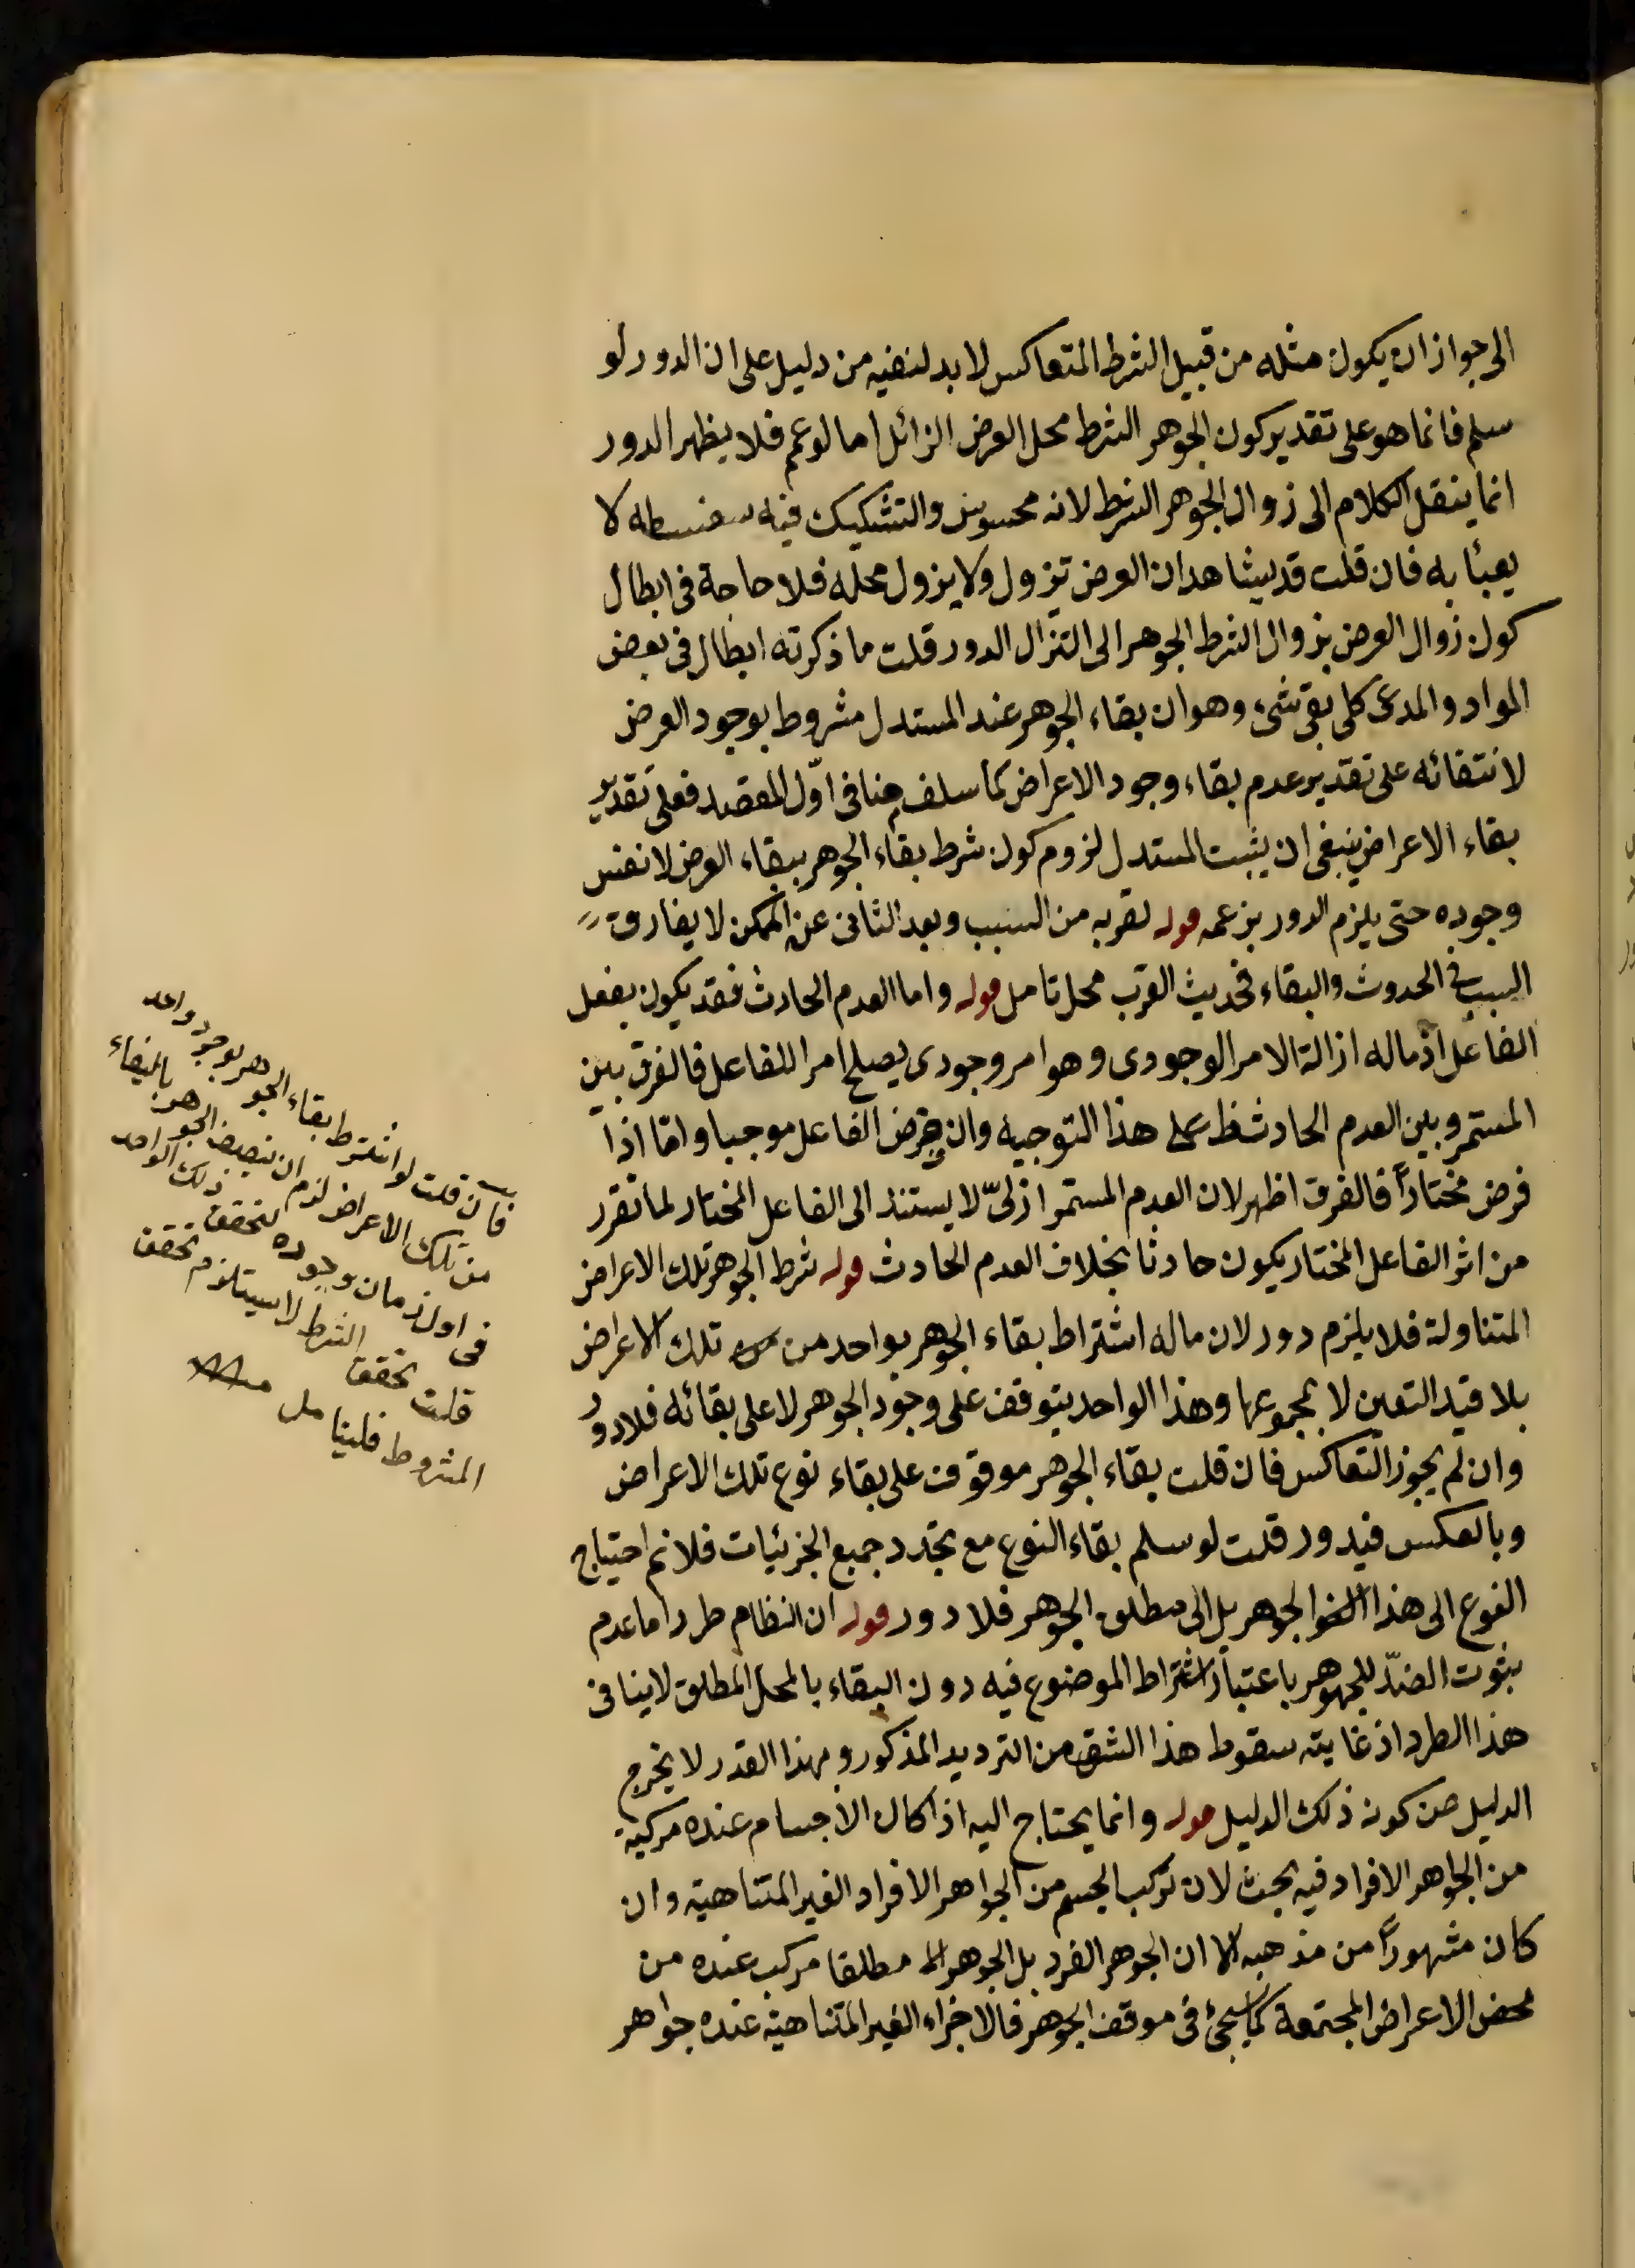 الى جواز ان يكون مثله من قبيل الشرط المتعاكس لا بد لنفيه من دليل على ان الدور لو
سلم فانما هو على تقدير كون الجوهر الشرط محل العرض الزائل اما لو عم فلا يظهر الدور
انما ينقل الكلام الى زوال الجوهر الشرط لانه محسوس والتشكيك فيه سفسطه لا
يعبأ به فان قلت قد يشاهد ان العرض تزول ولا يزول محله فلا حاجة فى ابطال
كون زوال العرض بزوال الشرط الجوهر الى التزال الدور قلت ما ذكرته ابطال فى بعض
المواد والمدعى كلى بقى شىء وهو ان بقاء الجوهر عند المستدل مشروط بوجود العرض
لانتفائه على تقدير عدم بقاء وجود الاعراض كما سلف منا فى اوّل المقصد فعلى تقدير
بقاء الاعراض ينبغى ان يثبت المستدل لزوم كون شرط بقاء الجوهر ببقاء العرض لا نفس
وجوده حتى يلزم الدور بزعمه قوله لقربه من السبب وبعد الثانى عن الممكن لا يفارق
السبب فى الحدوث والبقاء فحديث القرب محل تامل قوله واما العدم الحادث فقد يكون بفعل
الفاعل اذ ماله ازالة الامر الوجودى وهو امر وجودى يصلح امرا للفاعل فالفرق بين
المستمر وبين العدم الحادث ظ على هذا التوجيه وان فرض الفاعل موجبا وامّا اذا
فرض مختاراً فالفرق اظهر لان العدم المستمر ازلىّ لا يستند الى الفاعل المختار لما تقرر
من اثر الفاعل المختار يكون حادثا بخلاف العدم الحادث قوله شرط الجوهر تلك الاعراض
المتناولة فلا يلزم دور لان ماله اشتراط بقاء الجوهر بواحد من تلك الاعراض
بلا قيد التعين لا بمجموعها وهذا الواحد يتوقف على وجود الجوهر لا على بقائه فلا دور
وان لم يجوز التعاكس فان قلت بقاء الجوهر موقوف على بقاء نوع تلك الاعراض
وبالعكس فيدور قلت لو سلم بقاء النوع مع تجدد جميع الجزئيات فلا نم احتياج
النوع الى هذا الجوهر بل الى مطلق الجوهر فلا دور قوله ان النظام طرد اما عدم
ثبوت الضدّ للجوهر باعتبار اشتراط الموضوع فيه دون البقاء بالمحل المطلق لا ينافى
هذا الطرد اذ غايته سقوط هذا الشق من الترديد المذكور وبهذا القدر لا يخرج
الدليل من كونه ذلك الدليل قوله وانما يحتاج اليه اذا كان الاجسام عنده مركبة
من الجواهر الافراد فيه بحث لان تركب الجسم من الجواهر الافراد الغير المتناهية وان
كان مشهوراً من مذهبه الا ان الجوهر الفرد بل الجوهر مطلقا مركب عنده من
محض الاعراض المجتمعة كما سيجئ فى موقف الجوهر فالاجزاء الغير المتناهية عنده جواهر
فان قلت لو اشترط بقاء الجوهر بوجود واحد
من تلك الاعراض لزم ان يتصف الجوهر بالبقاء
فى اول زمان وجوده لتحقق ذلك الواحد
قلت تحقق الشرط لا يستلزم تحقق
المشروط فليتامل